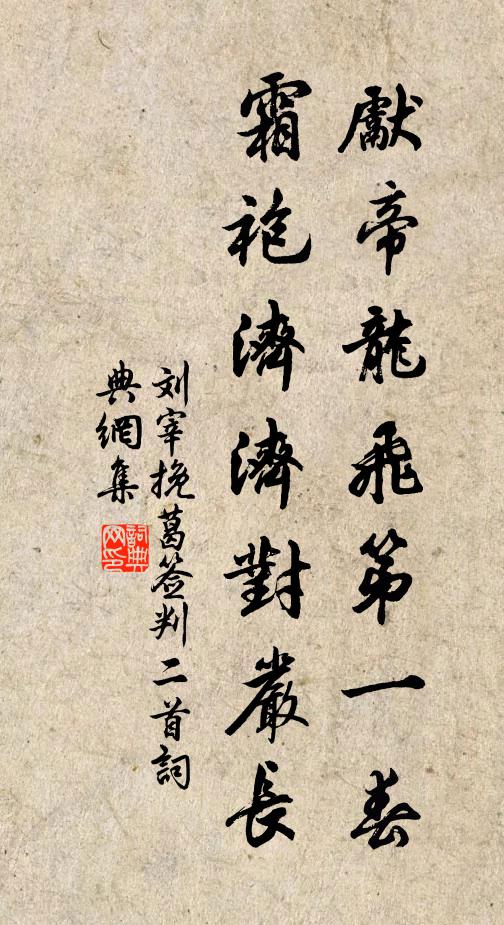 獻帝龍飛第一春
霜袍濟濟對嚴長
刘宰挽葛签判二首詞
典網集
詞典
网印